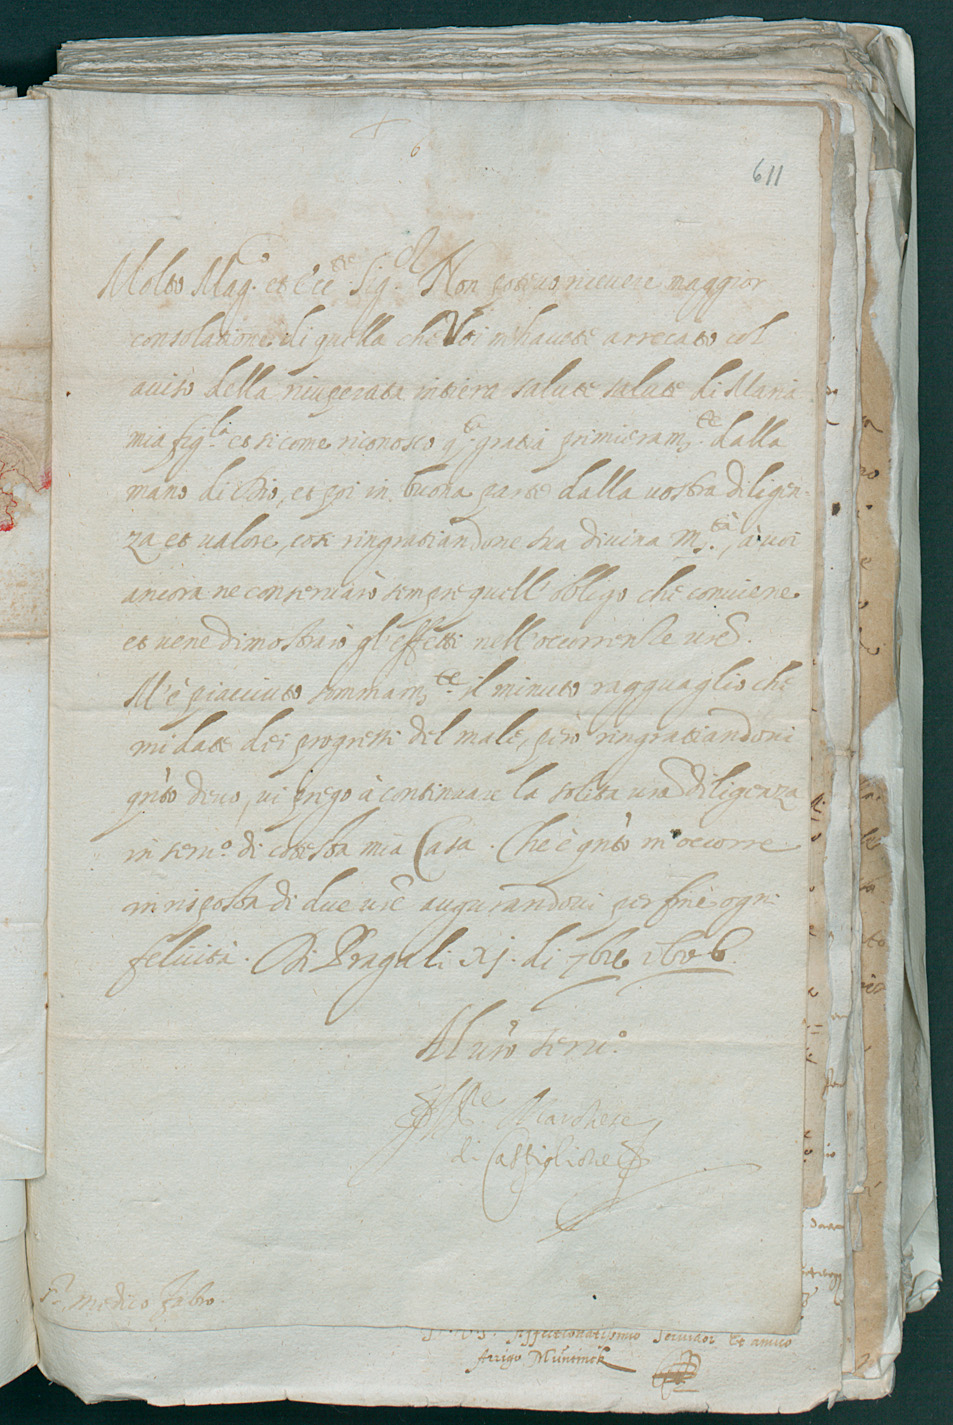 611
Molto Mag.co et Ecc.te Sig.re Non potevo ricevere maggior
consolatione di quella che Voi m'havete arrecato col
aviso della ricuperata intiera salute salute di Maria
mia fig.la et sicome riconosco q.ta gratia primieram.te dalla
mano di Dio, et poi in buona parte dalla vostra diligen-
za et valore, così ringratiandone sua divina M.tà, à voi
ancora ne conservarò sempre quell'obligo che conviene
et vene dimostrarò gl'effetti nell'occorrenze vre.
M'è piacciuto sommam.te il minuto ragguaglio che
mi date dei progressi del male, però ringratiandovi
q.nto devo, vi prego à continuare la solita vra diligenza
in serv.o di cotesta mia Casa. Che è q.nto m'occorre
in risposta di due vre augurandovi per fine ogni
felicità. Di Praga li xj. di 7bre 1606.
Al vro serv.o
Marchese
di Castiglione
medico Fabro.
Affectionatissimo servitor et amico
Arrigo